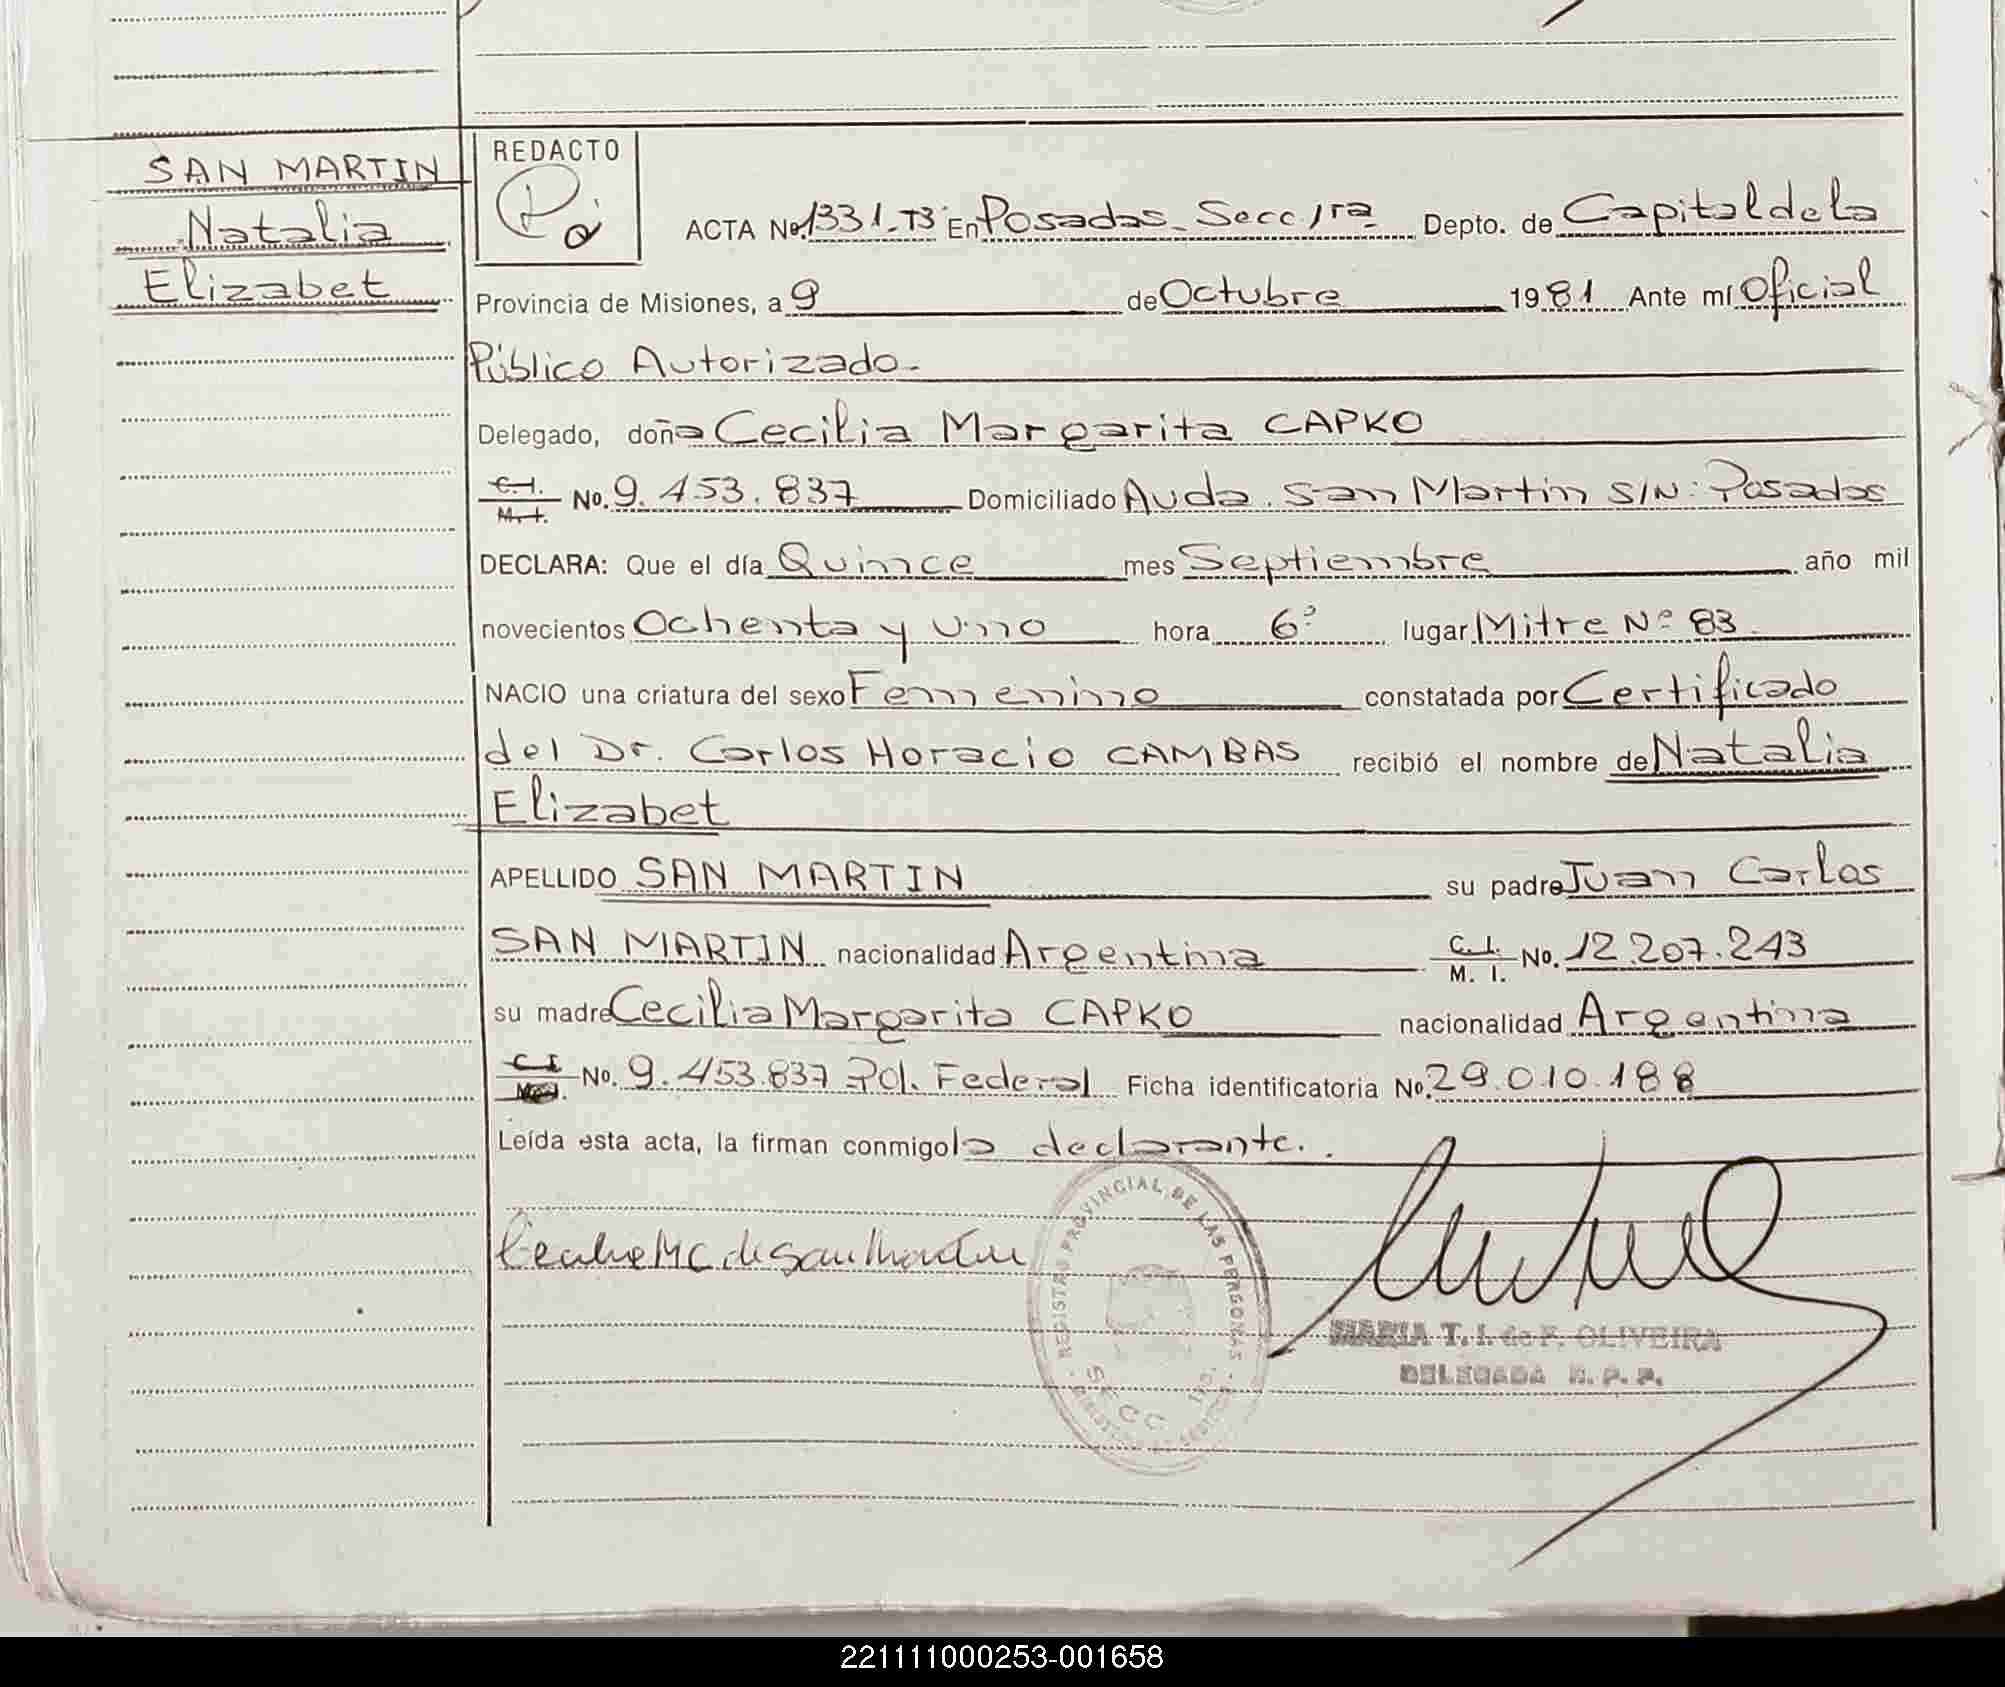 SAN MARTIN
Natalia
Elizabet
REDACTO
ACTA No. 1331-T3 En Posadas - Secc. 1ra Depto. de Capital de la
Provincia de Misiones, a 9 de Octubre 1981 Ante mí Oficial
Público Autorizado-
Delegado, doña Cecilia Margarita CAPKO
C.I. M.I. No. 9.453.837 Domiciliado Avda. San Martín S/N: Posadas
DECLARA: Que el día Quince mes Septiembre año mil
novecientos Ochenta y Uno hora 6° lugar Mitre Nº 83
NACIO una criatura del sexo Femenino constatada por Certificado
del Dr. Carlos Horacio CAMBAS recibió el nombre de Natalia
Elizabet
APELLIDO SAN MARTIN su padre Juan Carlos
SAN MARTIN nacionalidad Argentina C.I. M. I. No. 12.207.243
su madre Cecilia Margarita CAPKO nacionalidad Argentina
C.I. No. 9.453.837 Pol. Federal Ficha identificatoria No. 29.010.188
Leída esta acta, la firman conmigo la declarante..
REGISTRO PROVINCIAL DE LAS PERSONAS
SECC
MARIA T. I. de F. OLIVEIRA
DELEGADA R. P. P.
221111000253-001658